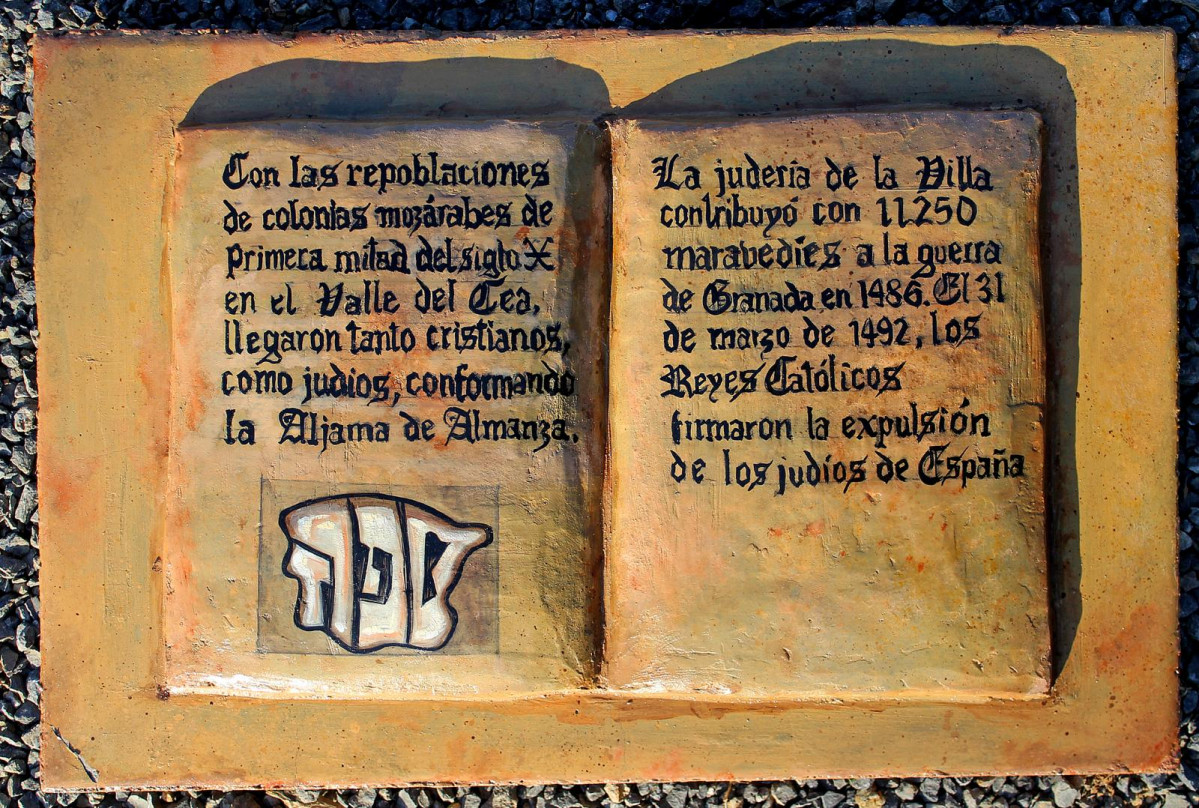 Con las repoblaciones
de colonias mozárabes de
primera mitad del siglo X
en el Valle del Cea,
llegaron tanto cristianos,
como judíos, conformando
la Aljama de Almanza.
ספרד
La judería de la Villa
contribuyó con 11.250
maravedíes a la guerra
de Granada en 1486. El 31
de marzo de 1492, los
Reyes Católicos
firmaron la expulsión
de los judíos de España